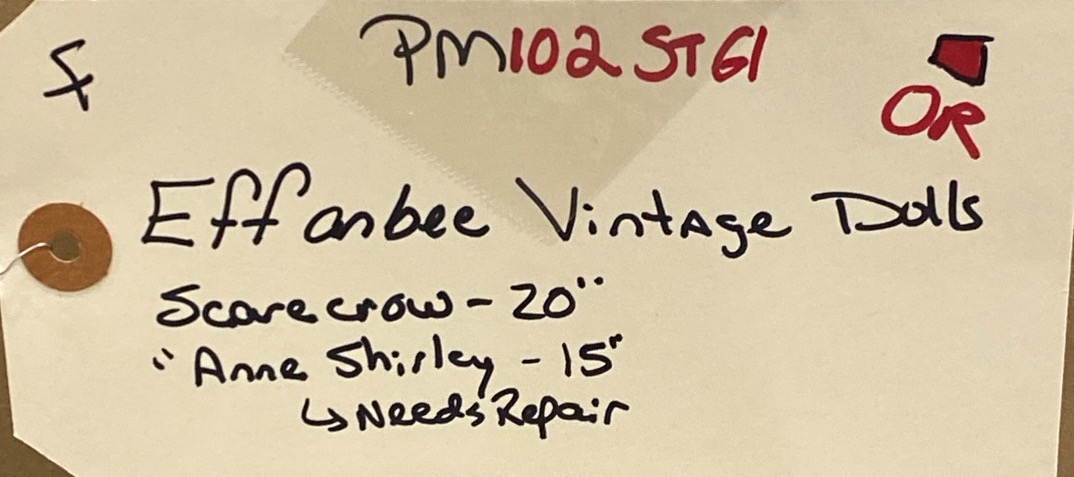 PM102STG1
OR
Effanbee Vintage Dolls
Scarecrow - 20"
"Anne Shirley - 15"
↳ Needs Repair